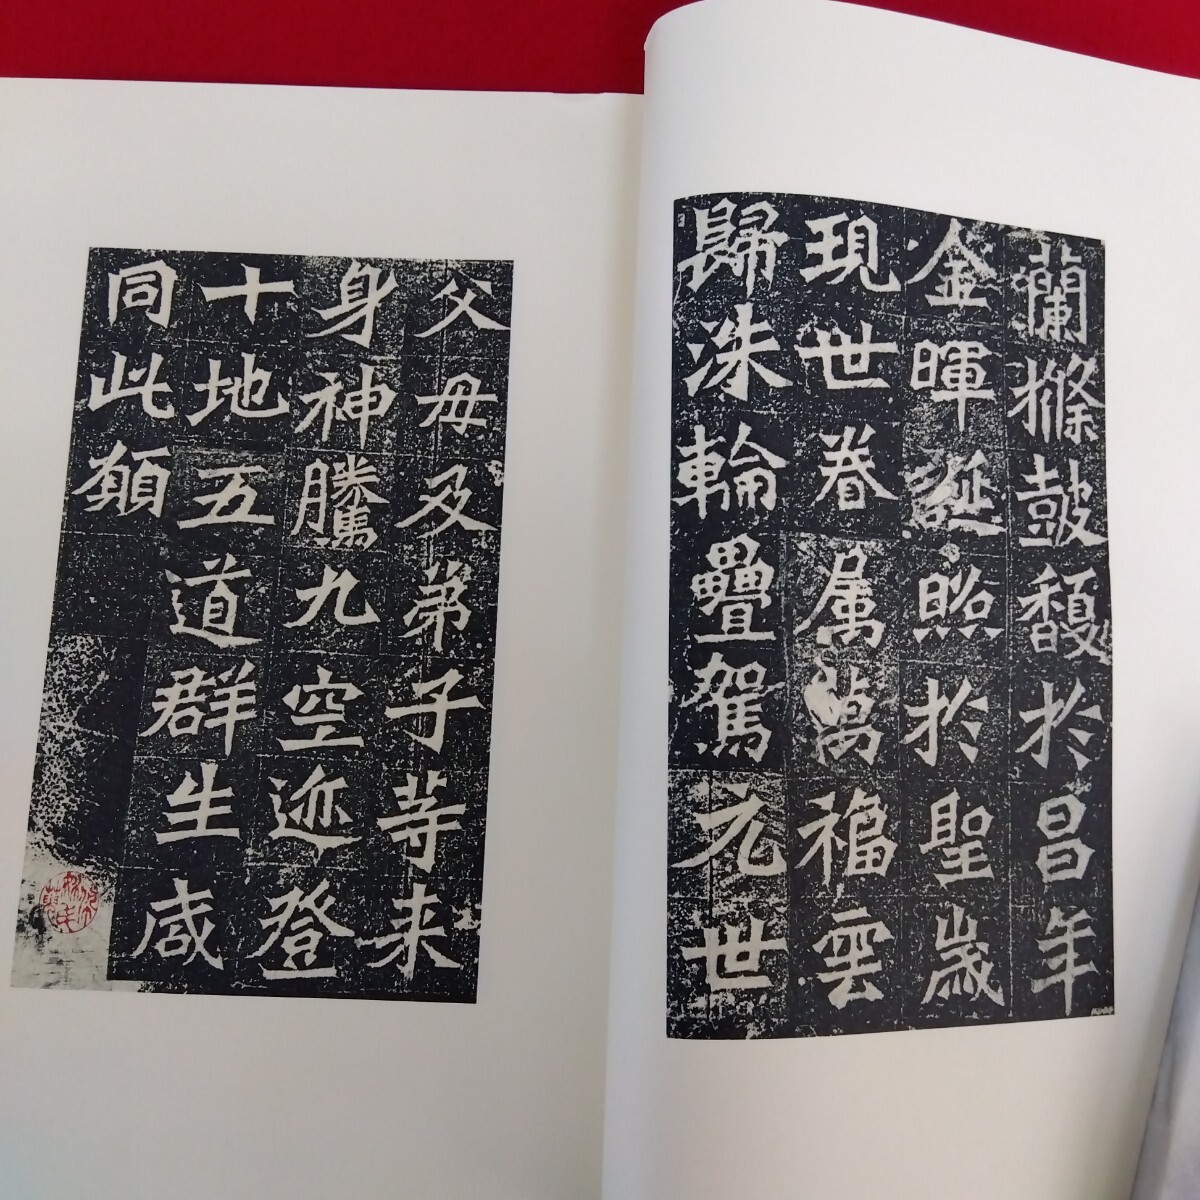 蘭樤皷馥於昌年
金暉誕照於聖歲
現世眷属萬福雲
歸洙輪疊駕元世
父母及弟子等来
身神騰九空迹登
十地五道群生咸
同此願